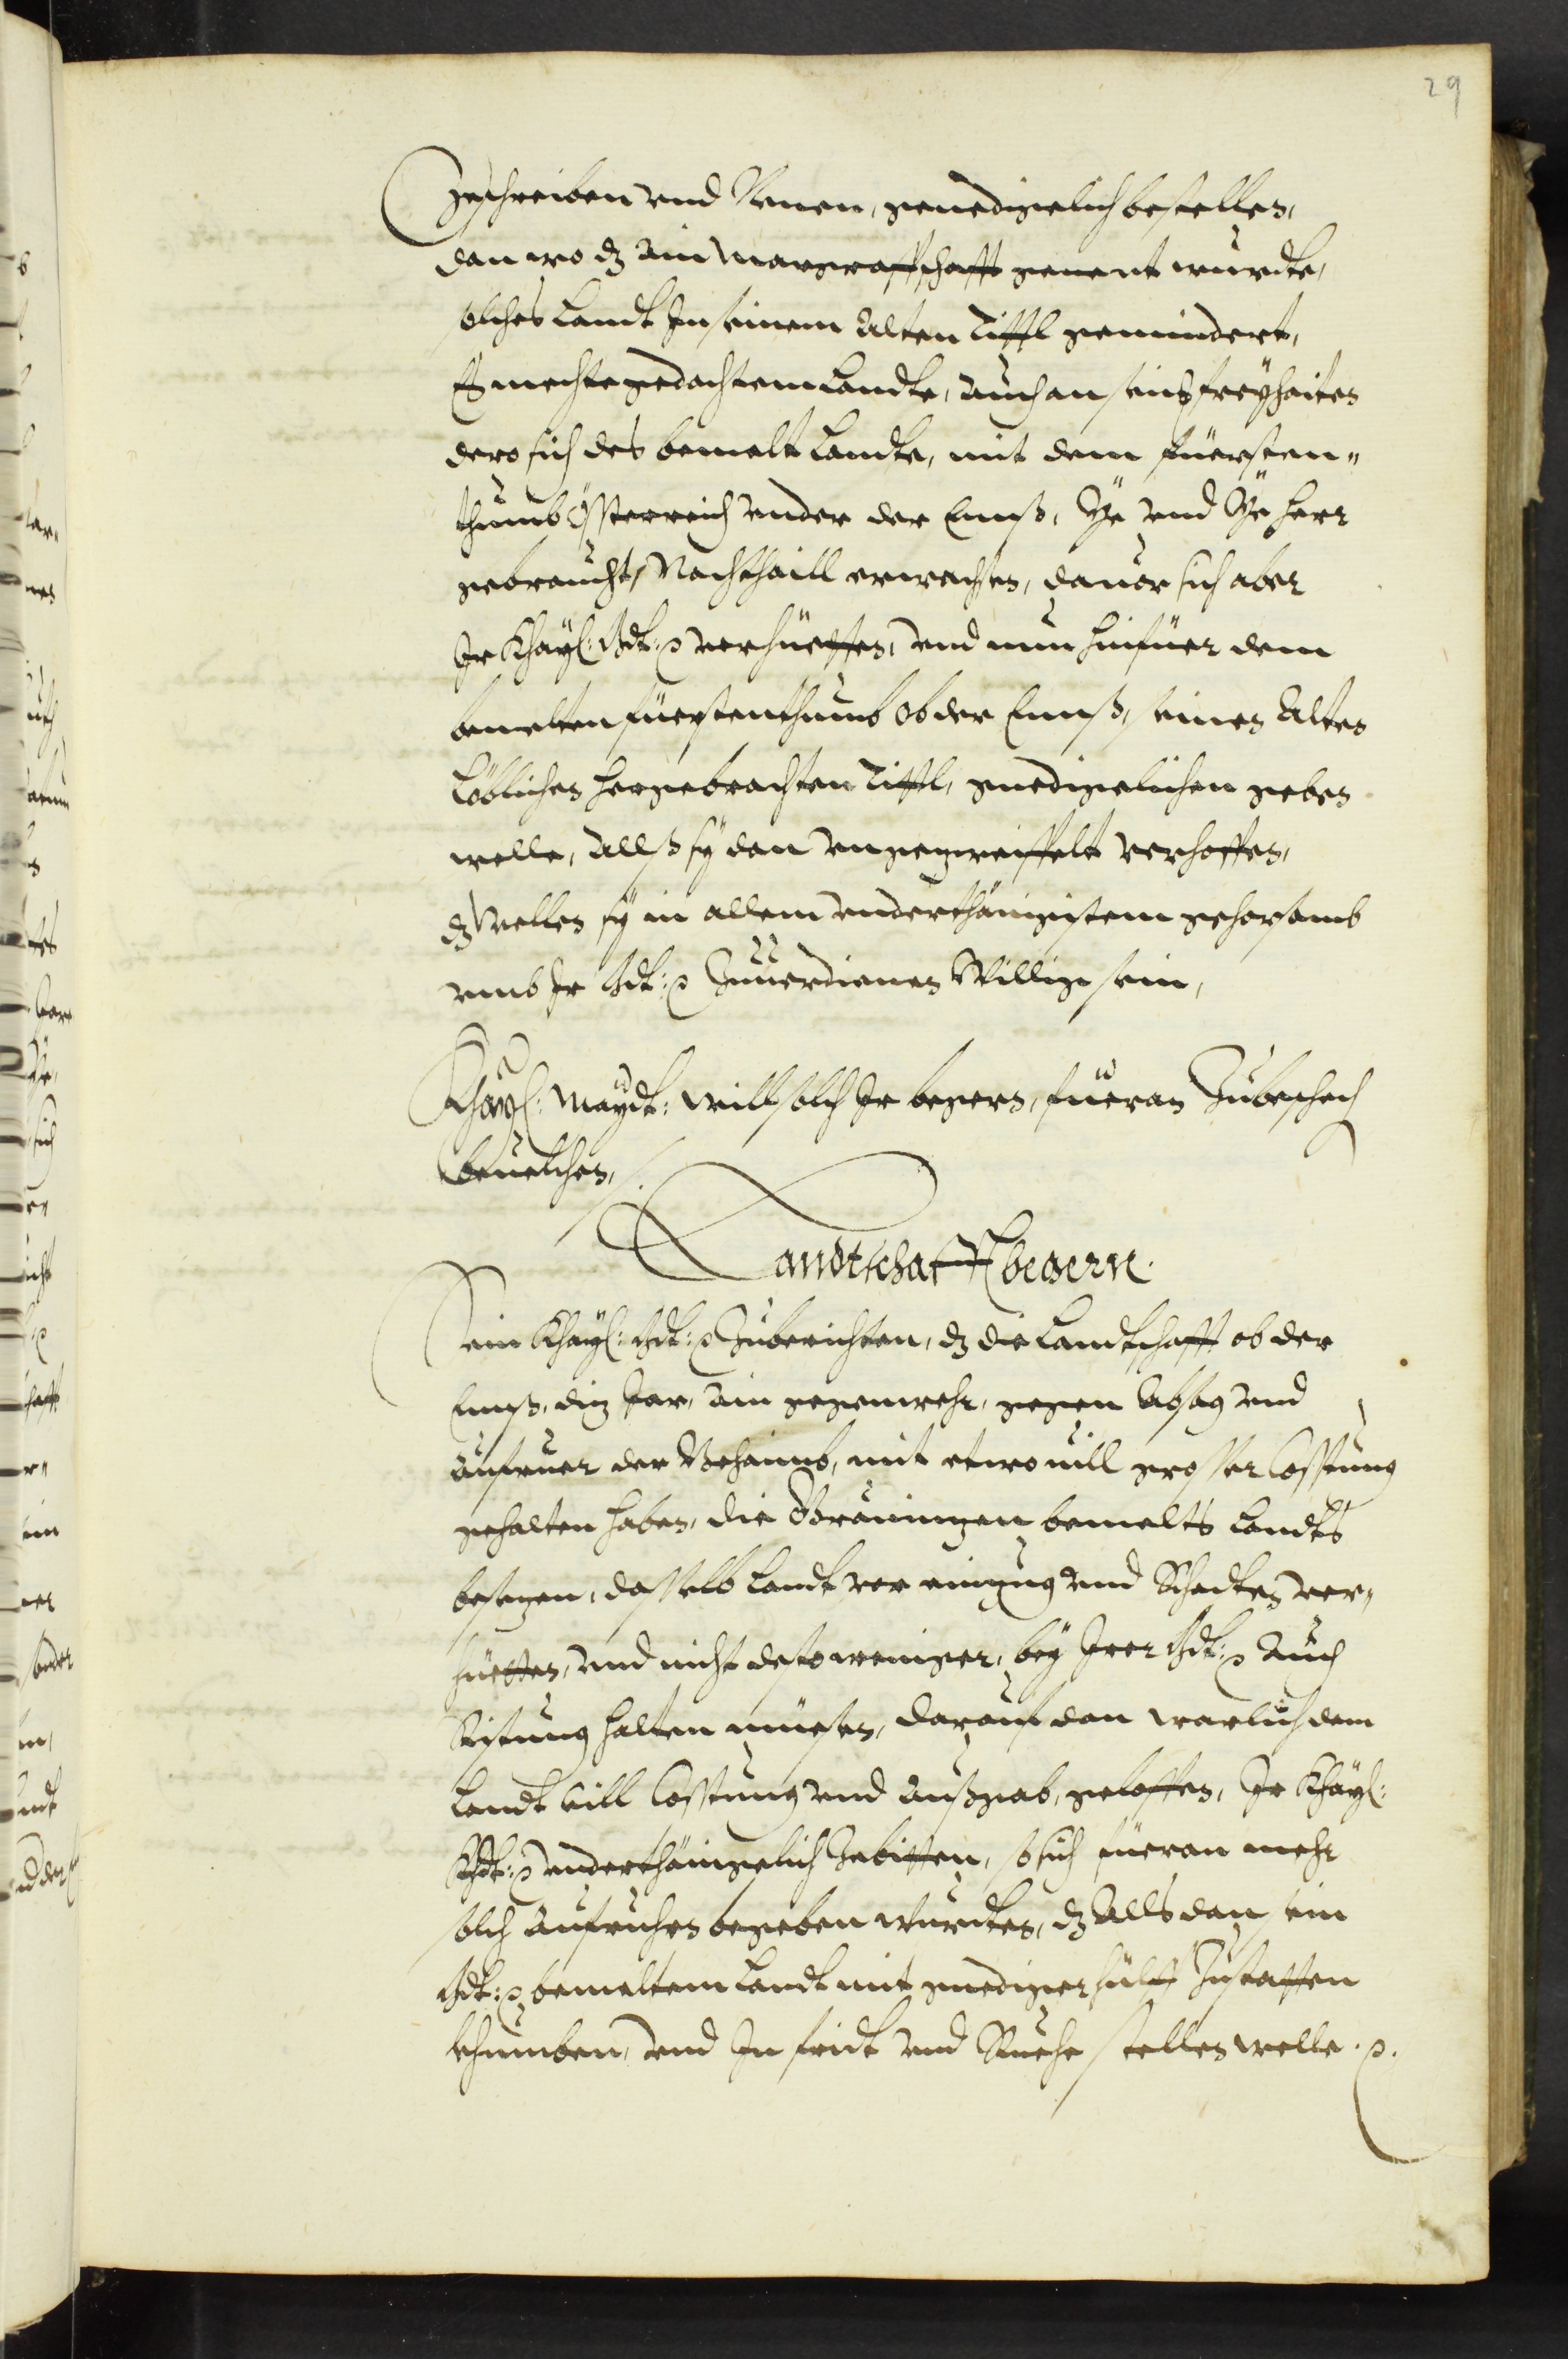 29
Zeschreiben vnd Nenen, genediglich bestellen,
dan wo dz ain Marggraffschafft genent wurde,
solches Landt In seinem Alten Tittl gemindert,
Es mechte gedachtem Landte, auch an seins freyhaiten
dero sich des bemelt Landte, mit dem fürsten„
thumb Össterreich vnder der Ennß, Ye vnd Ye herr
gebraucht, Nachthaill erwachsen, dauor sich aber
Ir Khayl: Mt: verhüetten, vnd nun hinfüer dem
bemelten fürstenthumb Ob der Ennß, seinen Alten
Löblichen hergebrachten Tittl, genediglichen geben
welle, Allß sy dan vngezweiffelt verhoffen,
dz wellen sy in allem vnderthänigistem gehorsamb
vmb Ir Mt: Zuuerdienen Willig sein,
Khayl: Maydt: will solch Ir begern, füeran Zubeschech
beuelchen,
Landtschafft begern.
Sein Khayl: Mt: Zuberichten, dz die Landtschafft ob der
Ennß, diz Jar, ain gegenwehr, gegen Absag vnd
Aufruer der Behaimb, mit etwouill grosser Costtung
gehalten haben, die Gräningen bemelts Landts
besezen, dasselb Landt vor einzug vnd Schaden ver„
hüetten, vnd nicht destoweniger, bey Irer Mt: Auch
Ristung halten müesen, darauf dan warlich dem
Landt Vill Costtung vnd Außgab, geloffen, Ir Khayl:
Mt: vnderthäniglich Zebitten, so sich füeran mehr
solch Aufruhrn begeben wurden, dz Alls dan sein
Mt: bemeltem Landt mit genediger hülff Zustatten
khumben, vnd In fridt vnd Ruehe stellen welle.